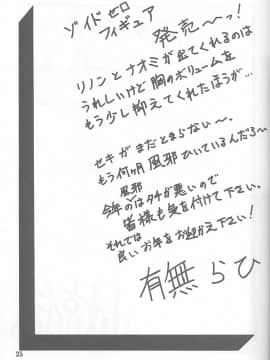 ゾイドゼロ
フィギュア
発売〜〜っ!
リノンとナオミが出てくれるのは
うれしいけど胸のボリュームを
もう少し抑えてくれたほうが…
セキがまだとまらない〜、
もう何ヶ月風邪ひいているんだろ〜
風邪
今年のはタチが悪いので
皆様も気を付けて下さい。
それでは
良いお年をお迎え下さい!
有無らひ
25